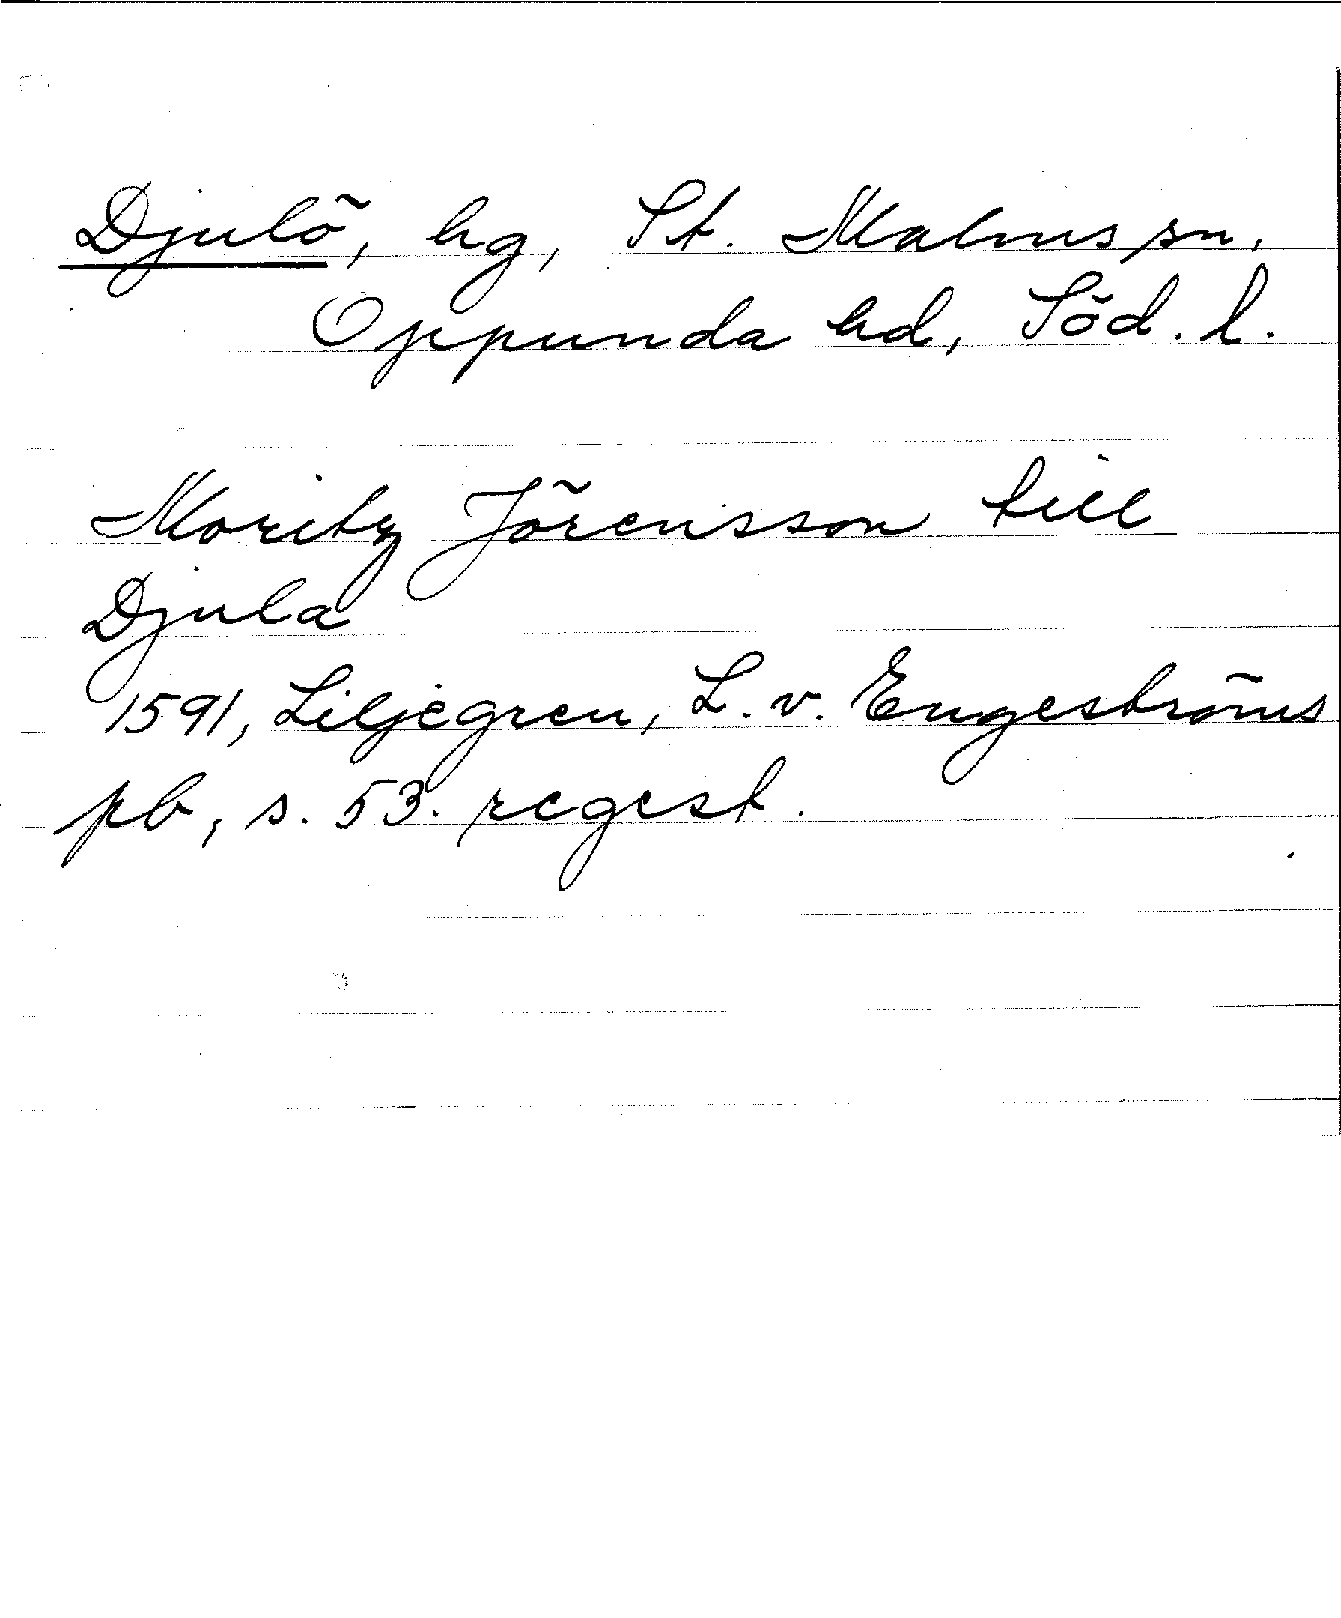 Djulö, hg, St. Malms sn.
Oppunda hd, Söd. l.
Moritz Jörensson till
Djula
1591, Liljegren, L. v. Engeströms
pb, s. 53. regest.